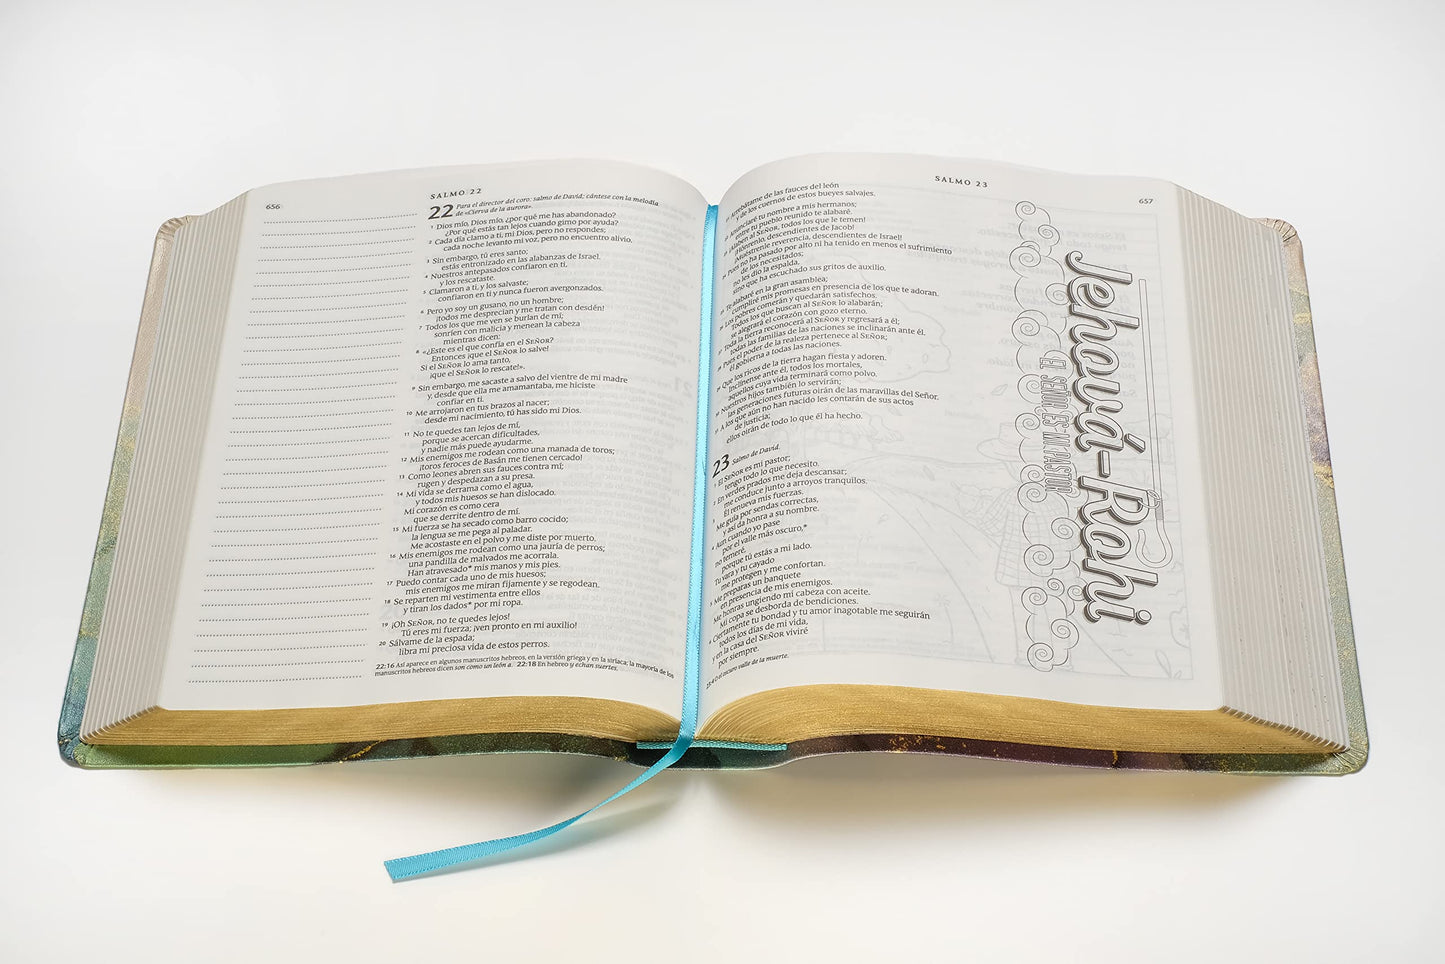 656
SALMO 22
22 Para el director del coro: salmo de David; cántese con la melodía
de «Cierva de la aurora».
1 Dios mío, Dios mío, ¿por qué me has abandonado?
¿Por qué estás tan lejos cuando gimo por ayuda?
2 Cada día clamo a ti, mi Dios, pero no respondes;
cada noche levanto mi voz, pero no encuentro alivio.
3 Sin embargo, tú eres santo;
estás entronizado en las alabanzas de Israel.
4 Nuestros antepasados confiaron en ti,
y los rescataste.
5 Clamaron a ti, y los salvaste;
confiaron en ti y nunca fueron avergonzados.
6 Pero yo soy un gusano, no un hombre;
¡todos me desprecian y me tratan con desdén!
7 Todos los que me ven se burlan de mí;
sonríen con malicia y menean la cabeza
mientras dicen:
8 «¿Este es el que confía en el SEÑOR?
Entonces ¡que el SEÑOR lo salve!
Si el SEÑOR lo ama tanto,
¡que el SEÑOR lo rescate!».
9 Sin embargo, me sacaste a salvo del vientre de mi madre
y, desde que ella me amamantaba, me hiciste
confiar en ti.
10 Me arrojaron en tus brazos al nacer;
desde mi nacimiento, tú has sido mi Dios.
11 No te quedes tan lejos de mí,
porque se acercan dificultades,
y nadie más puede ayudarme.
12 Mis enemigos me rodean como una manada de toros;
¡toros feroces de Basán me tienen cercado!
13 Como leones abren sus fauces contra mí;
rugen y despedazan a su presa.
14 Mi vida se derrama como el agua,
y todos mis huesos se han dislocado.
Mi corazón es como cera
que se derrite dentro de mí.
15 Mi fuerza se ha secado como barro cocido;
la lengua se me pega al paladar.
Me acostaste en el polvo y me diste por muerto.
16 Mis enemigos me rodean como una jauría de perros;
una pandilla de malvados me acorrala.
Han atravesado* mis manos y mis pies.
17 Puedo contar cada uno de mis huesos;
mis enemigos me miran fijamente y se regodean.
18 Se reparten mi vestimenta entre ellos
y tiran los dados* por mi ropa.
19 ¡Oh SEÑOR, no te quedes lejos!
Tú eres mi fuerza; ¡ven pronto en mi auxilio!
20 Sálvame de la espada;
libra mi preciosa vida de estos perros.
22:16 Así aparece en algunos manuscritos hebreos, en la versión griega y en la siríaca; la mayoría de los
manuscritos hebreos dicen son como un león a. 22:18 En hebreo y echan suertes.
SALMO 23
657
21 Arrebátame de las fauces del león
y de los cuernos de estos bueyes salvajes.
22 Anunciaré tu nombre a mis hermanos;
entre tu pueblo reunido te alabaré.
23 ¡Alaben al SEÑOR, todos los que le temen!
¡Hónrenlo, descendientes de Jacob!
¡Muéstrenle reverencia, descendientes de Israel!
24 Pues no ha pasado por alto ni ha tenido en menos el sufrimiento
de los necesitados;
no les dio la espalda,
sino que ha escuchado sus gritos de auxilio.
25 Te alabaré en la gran asamblea;
cumpliré mis promesas en presencia de los que te adoran.
26 Los pobres comerán y quedarán satisfechos.
Todos los que buscan al SEÑOR lo alabarán;
se alegrará el corazón con gozo eterno.
27 Toda la tierra reconocerá al SEÑOR y regresará a él;
todas las familias de las naciones se inclinarán ante él.
28 Pues el poder de la realeza pertenece al SEÑOR;
él gobierna a todas las naciones.
29 Que los ricos de la tierra hagan fiesta y adoren.
Inclínense ante él, todos los mortales,
aquellos cuya vida terminará como polvo.
30 Nuestros hijos también lo servirán;
las generaciones futuras oirán de las maravillas del Señor.
31 A los que aún no han nacido les contarán de sus actos
de justicia;
ellos oirán de todo lo que él ha hecho.
23 Salmo de David.
1 El SEÑOR es mi pastor;
tengo todo lo que necesito.
2 En verdes prados me deja descansar;
me conduce junto a arroyos tranquilos.
3 Él renueva mis fuerzas.
Me guía por sendas correctas,
y así da honra a su nombre.
4 Aun cuando yo pase
por el valle más oscuro,*
no temeré,
porque tú estás a mi lado.
Tu vara y tu cayado
me protegen y me confortan.
5 Me preparas un banquete
en presencia de mis enemigos.
Me honras ungiendo mi cabeza con aceite.
Mi copa se desborda de bendiciones.
6 Ciertamente tu bondad y tu amor inagotable me seguirán
todos los días de mi vida,
y en la casa del SEÑOR viviré
por siempre.
23:4 O el oscuro valle de la muerte.
Jehová-Rohi
EL SEÑOR ES MI PASTOR